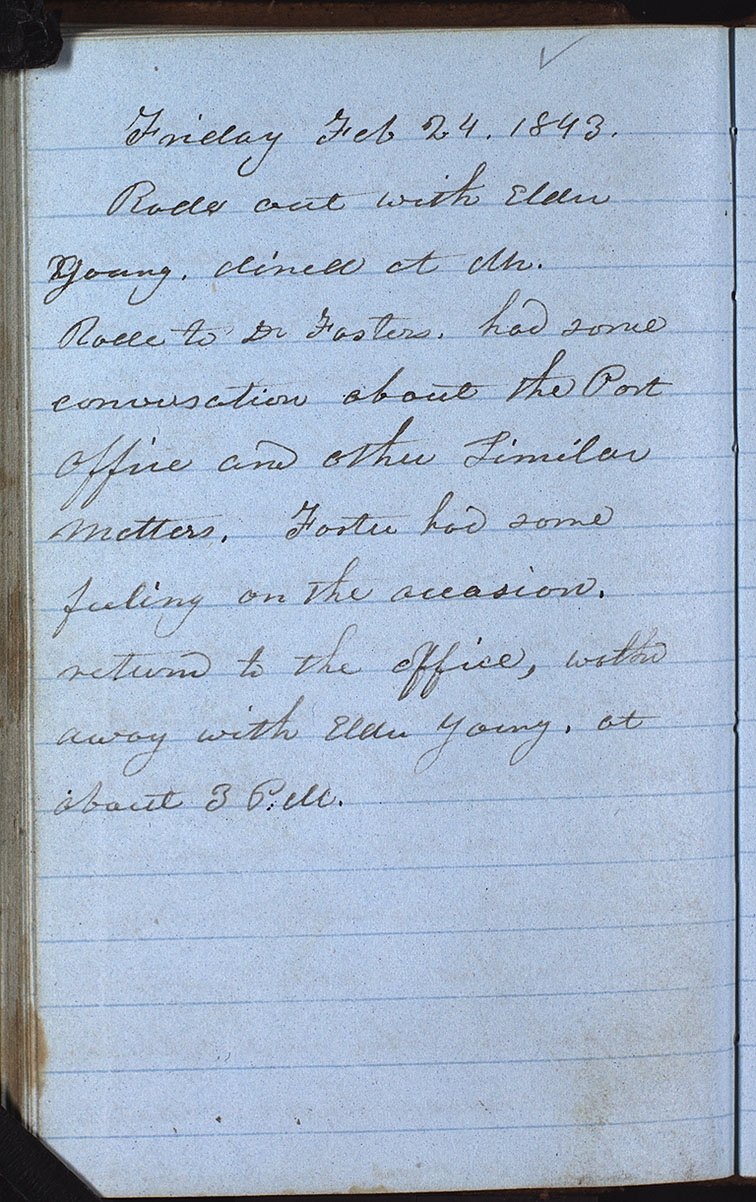 Friday Feb 24. 1843.
Rode out with Elder
Young. dined at Mr.
Rode to Dr Fosters. had some
conversation about the Post
office and other Similar
Matters. Foster had some
feeling on the occasion.
returnd to the office,
away with Elder Young. at
about 3 P.M.